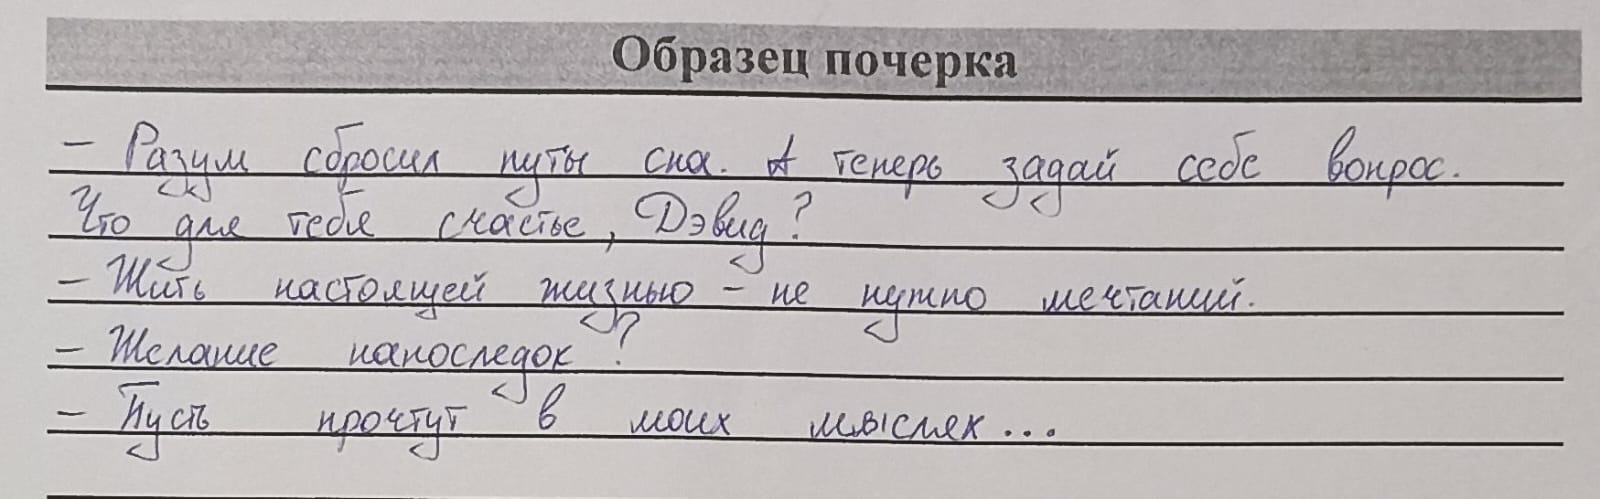 Образец почерка
– Разум сбросил путы сна. А теперь задай себе вопрос.
Что для тебя счастье, Дэвид?
– Жить настоящей жизнью – не нужно мечтаний.
– Желание напоследок?
– Пусть прочтут в моих мыслях...